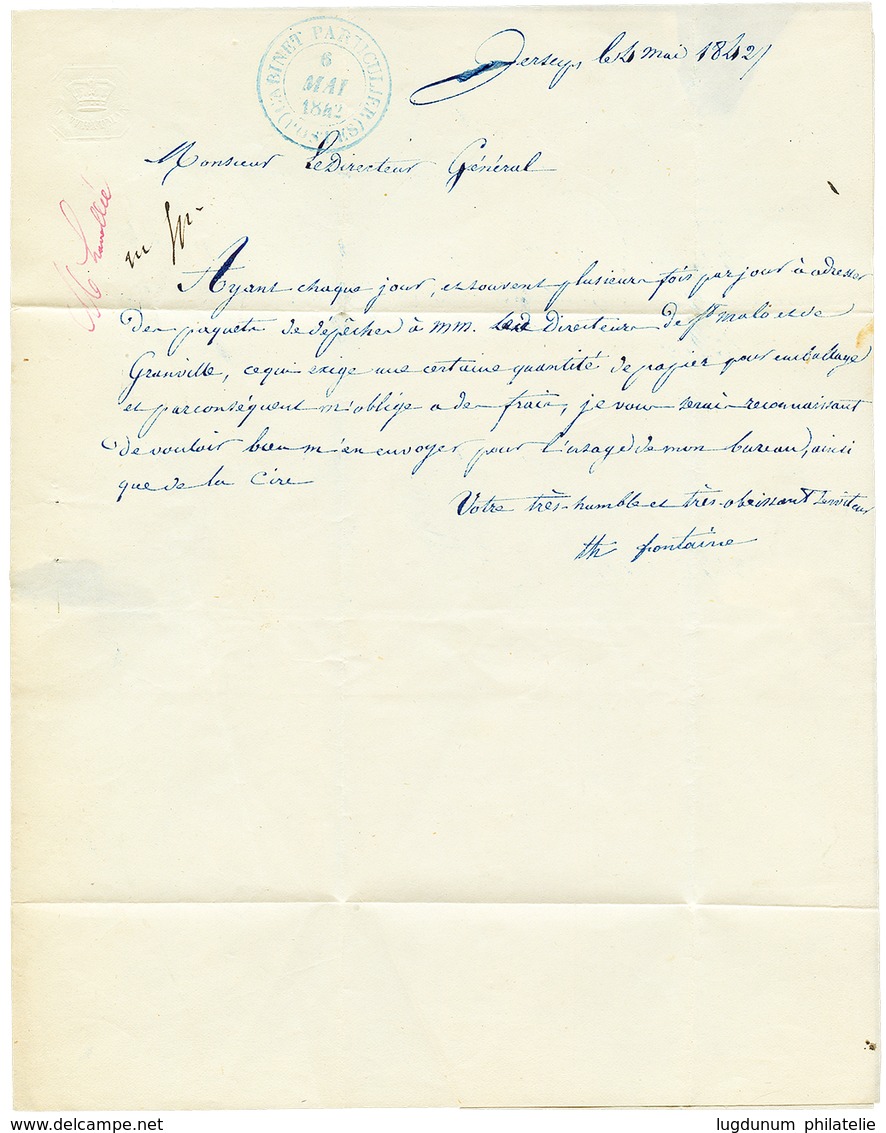 Jersey, le 4 mai 1842
CABINET PARTICULIER (POSTES)
6
MAI
1842
Monsieur Le Directeur Général
M. Lavallée
Ayant chaque jour, et souvent plusieurs fois par jour à adresser
des paquets de dépêches à MM. Les Directeurs de St malo et de
Granville, ce qui exige une certaine quantité de papier pour emballage
et par conséquent m'oblige a des frais, je vous serais reconnaissant
de vouloir bien m'en envoyer pour l'usage de mon bureau, ainsi
que de la Cire
Votre très-humble et très-obeissant Serviteur
th fontaine
lugdunum philatelie